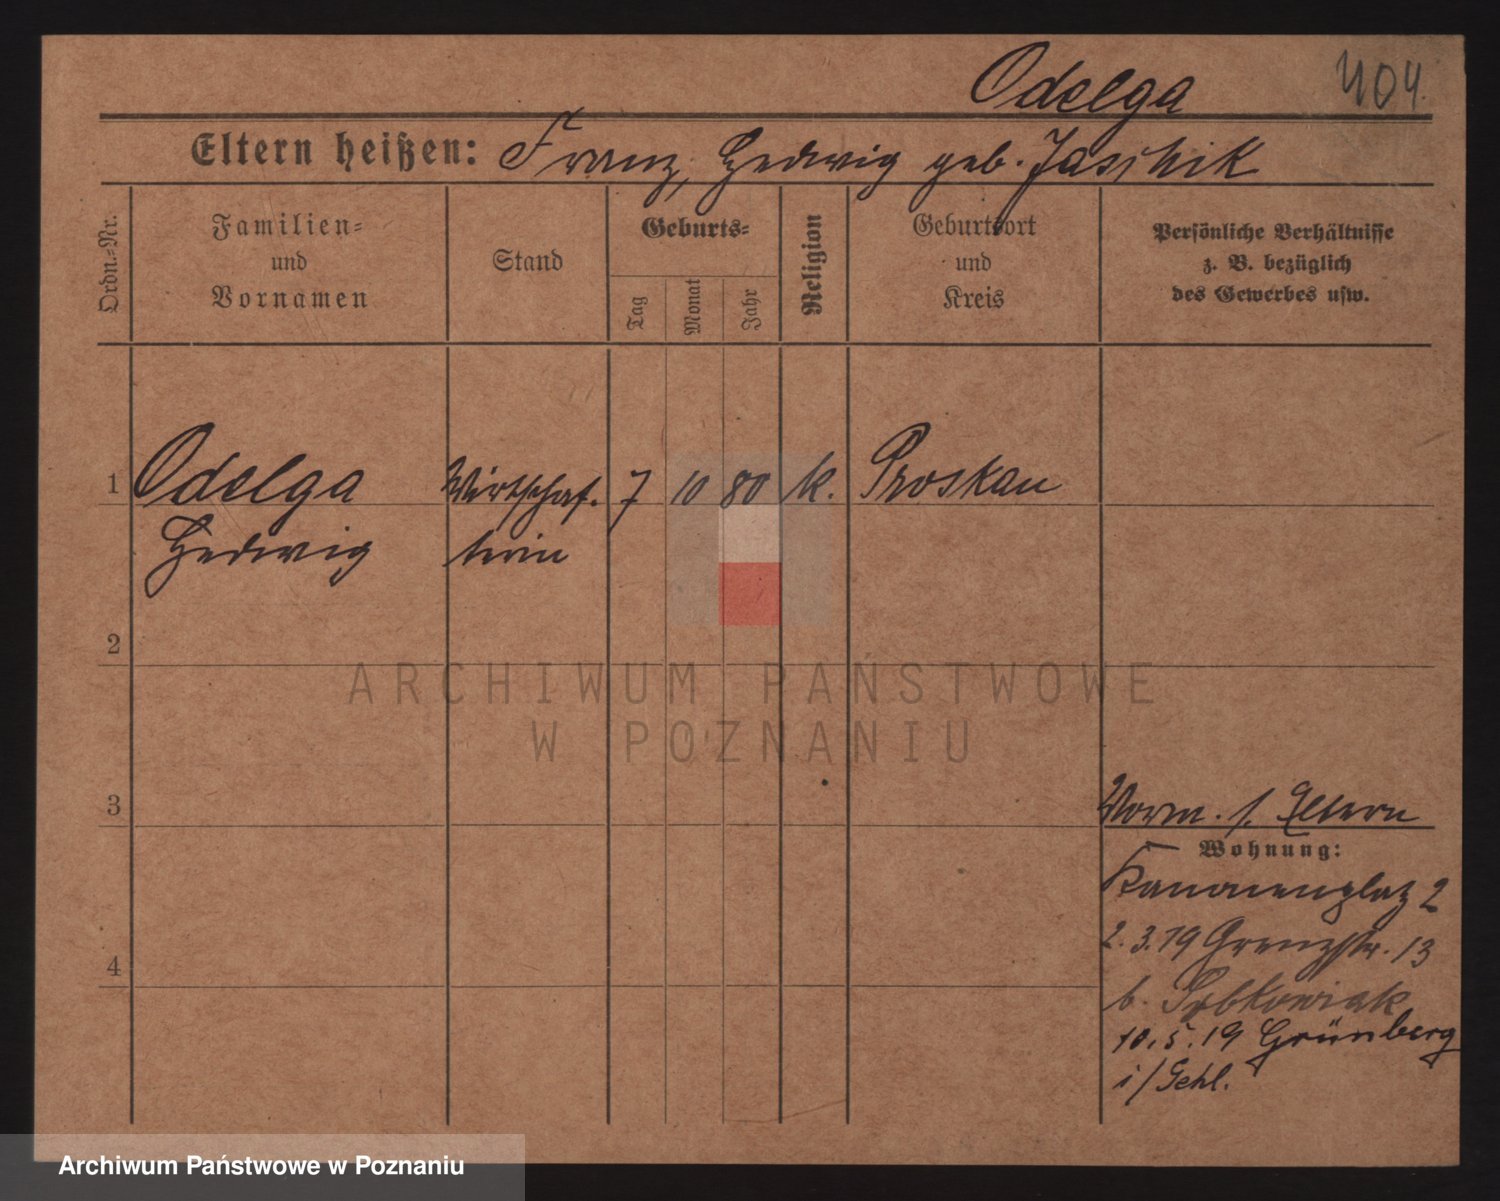 Odelga 404.
Eltern heißen: Franz, Hedwig geb. Jaschik
Ordn.-Nr.
Familien-
und
Vornamen
Stand
Geburts-
Tag
Monat
Jahr
Religion
Geburtsort
und
Kreis
Persönliche Verhältnisse
z. B. bezüglich
des Gewerbes usw.
1 Odelga Wirtschaf- 7 10 80 k. Proskau
Hedwig terin
2
ARCHIWUM PAŃSTWOWE
W POZNANIU
3
Vorm. s. Eltern
Wohnung:
Kanonenplatz 2
2.3.19 Grenzstr. 13
4
b.
10.5.19 Grünberg
i/Schl.
Archiwum Państwowe w Poznaniu